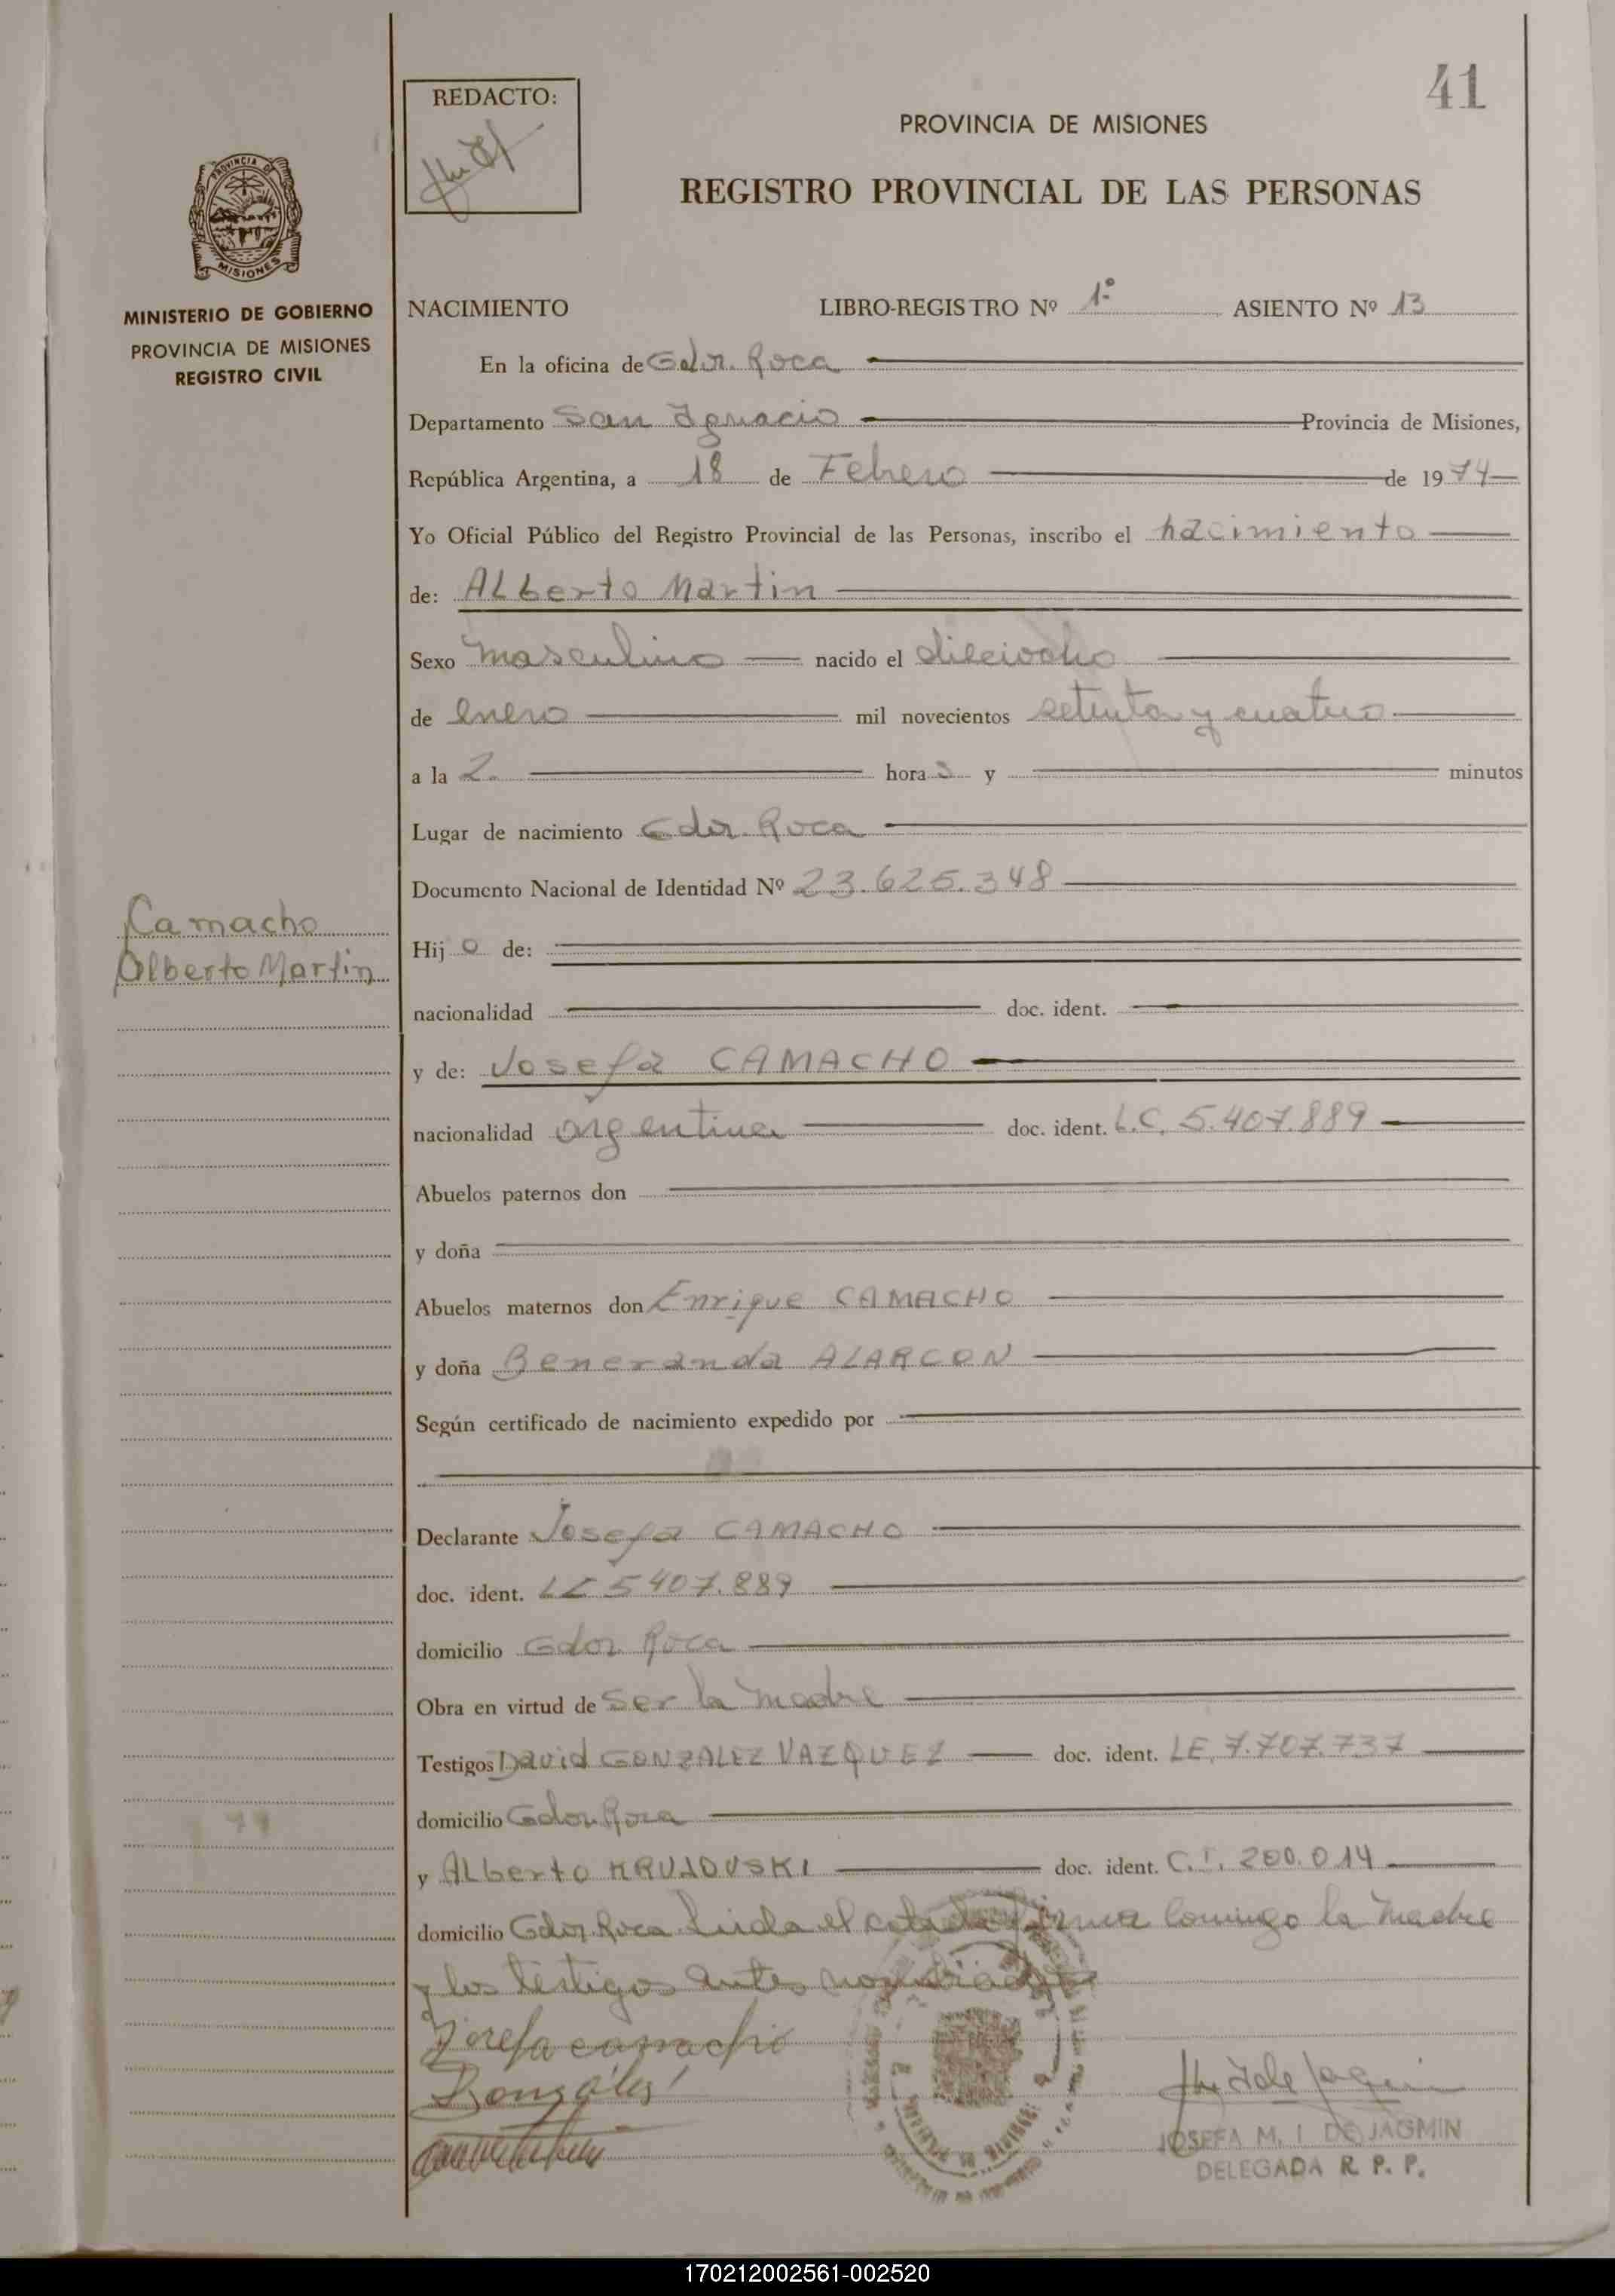 41
REDACTO:
PROVINCIA DE MISIONES
REGISTRO PROVINCIAL DE LAS PERSONAS
PROVINCIA DE
MISIONES
MINISTERIO DE GOBIERNO
PROVINCIA DE MISIONES
REGISTRO CIVIL
NACIMIENTO LIBRO-REGISTRO Nº 1º ASIENTO Nº 13
En la oficina de Gdor. Roca
Departamento San Ignacio Provincia de Misiones,
República Argentina, a 18 de Febrero de 1974
Yo Oficial Público del Registro Provincial de las Personas, inscribo el nacimiento
de: ALberto Martin
Sexo masculino nacido el dieciocho
de enero mil novecientos setenta y cuatro
a la 2. hora s y minutos
Lugar de nacimiento Gdor. Roca
Documento Nacional de Identidad Nº 23.625.348
Camacho
Alberto Martin
Hij o de:
nacionalidad doc. ident.
y de: Josefa CAMACHO
nacionalidad argentina doc. ident. L.C. 5.407.889
Abuelos paternos don
y doña
Abuelos maternos don Enrique CAMACHO
y doña Beneranda ALARCON
Según certificado de nacimiento expedido por
Declarante Josefa CAMACHO
doc. ident. LC 5407.889
domicilio Gdor Roca
Obra en virtud de ser la madre
Testigos David GONZALEZ VAZQUEZ doc. ident. LE. 7.707.737
domicilio Gdor. Roca
y ALberto doc. ident. C.I. 200.014
domicilio Gdor. Roca Leida el acta firma conmigo la madre
y los testigos antes nombrados
Josefa camacho
Gonzáles
JOSEFA M. I. DE JAGMIN
DELEGADA R. P. P.
170212002561-002520